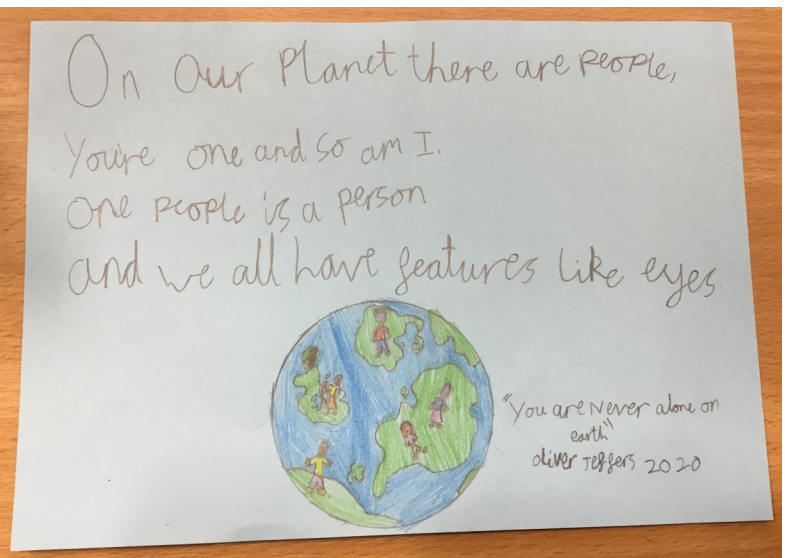 On Our Planet there are people,
You're one and so am I.
One people is a person
and we all have features like eyes.
"You are Never alone on
earth"
oliver Jeffers 2020